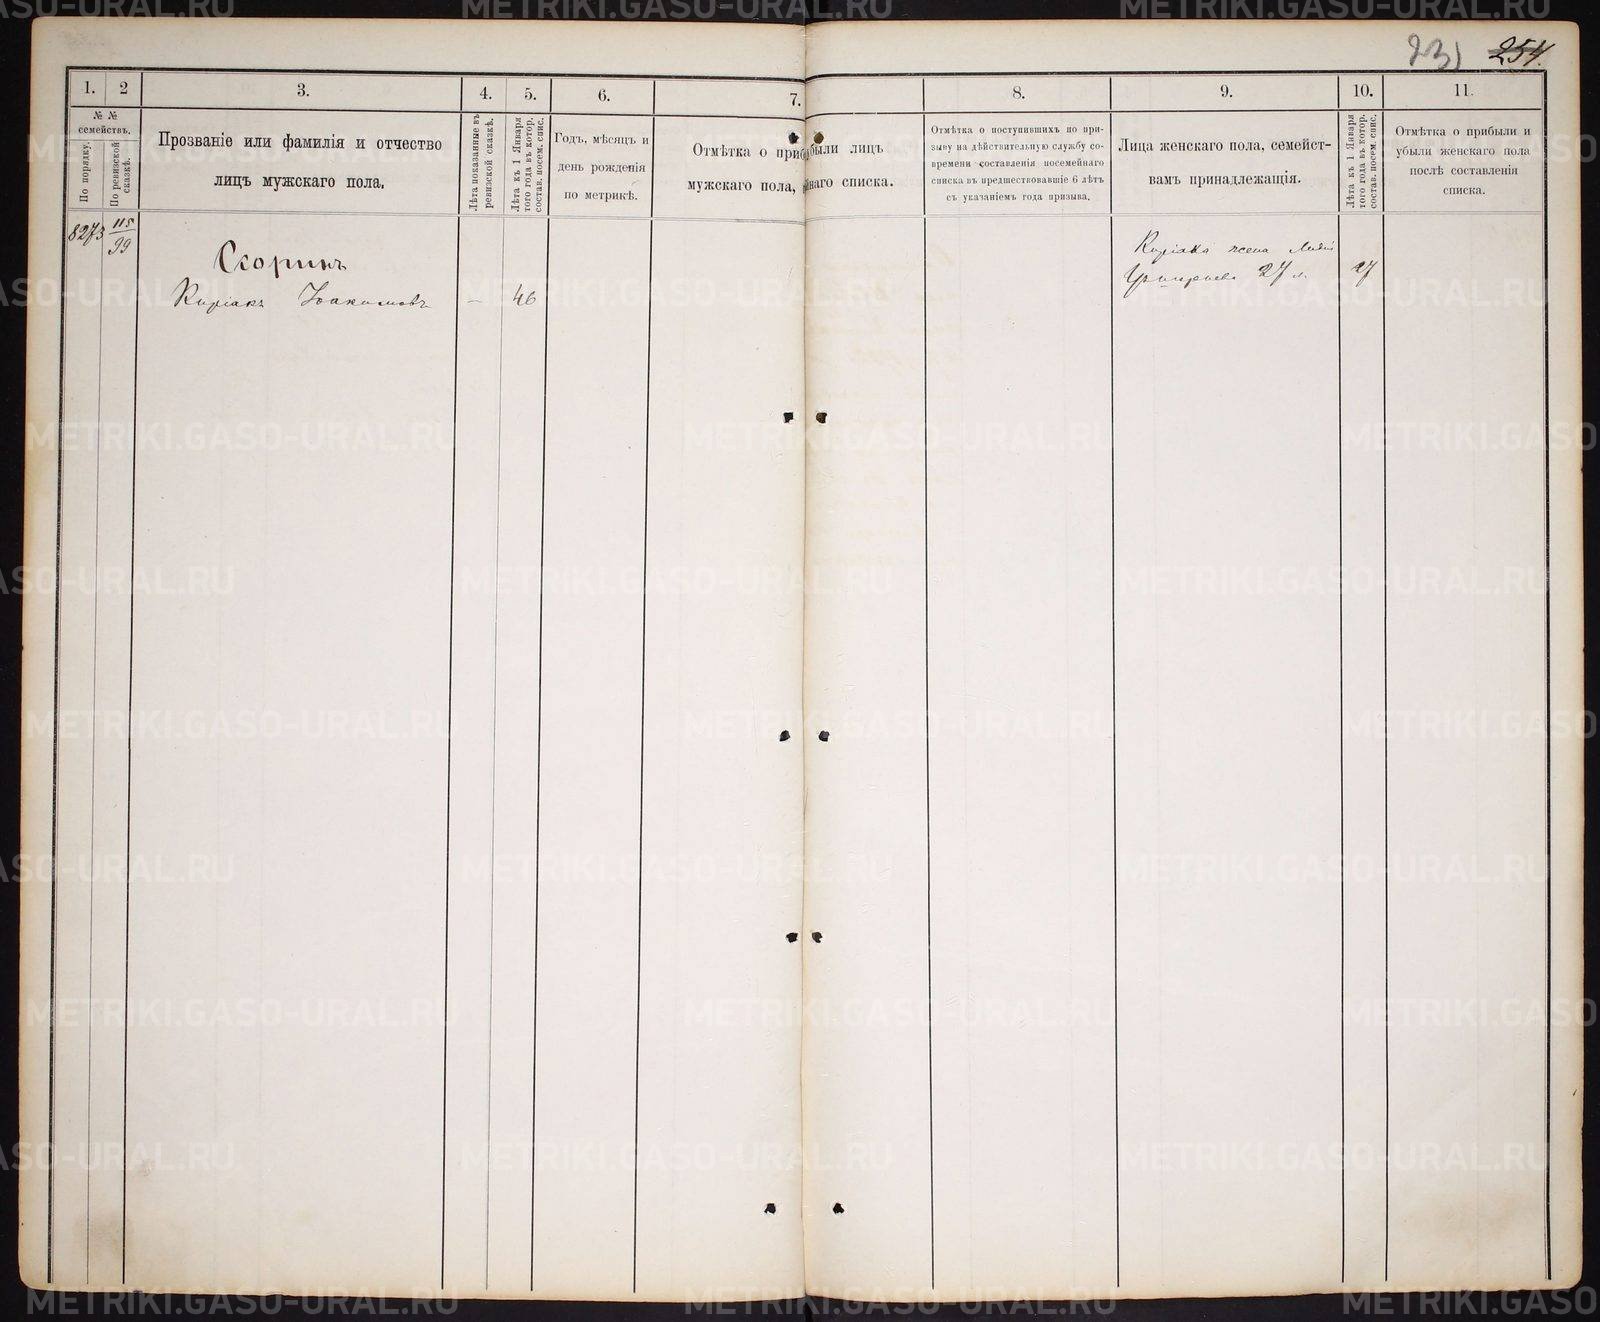 231 254.
1. 2 3. 4. 5. 6. 7. 8. 9. 10. 11.
№ №
семействъ.
По порядку.
По ревизской
сказкѣ.
Прозваніе или фамилія и отчество
лицъ мужскаго пола.
Лѣта показанные въ
ревизской сказкѣ.
Лѣта къ 1 Января
того года въ котор.
состав. посем. спис.
Годъ, мѣсяцъ и
день рожденія
по метрикѣ.
Отмѣтка о приб были лицъ
мужскаго пола, йнаго списка.
Отмѣтка о поступившихъ по при-
зыву на дѣйствительную службу со-
времени составленія посемейнаго
списка въ предшествовавшіе 6 лѣтъ
съ указаніемъ года призыва.
Лица женскаго пола, семейст-
вамъ принадлежащія.
Лѣта къ 1 Января
того года въ котор.
состав. посем. спис.
Отмѣтка о прибыли и
убыли женскаго пола
послѣ составленія
списка.
8273 115
99
Скоринъ
Киріакъ Іоакимовъ — 46
Киріака жена Лидія
27 л. 27
METRIKI.GASO-URAL.RU